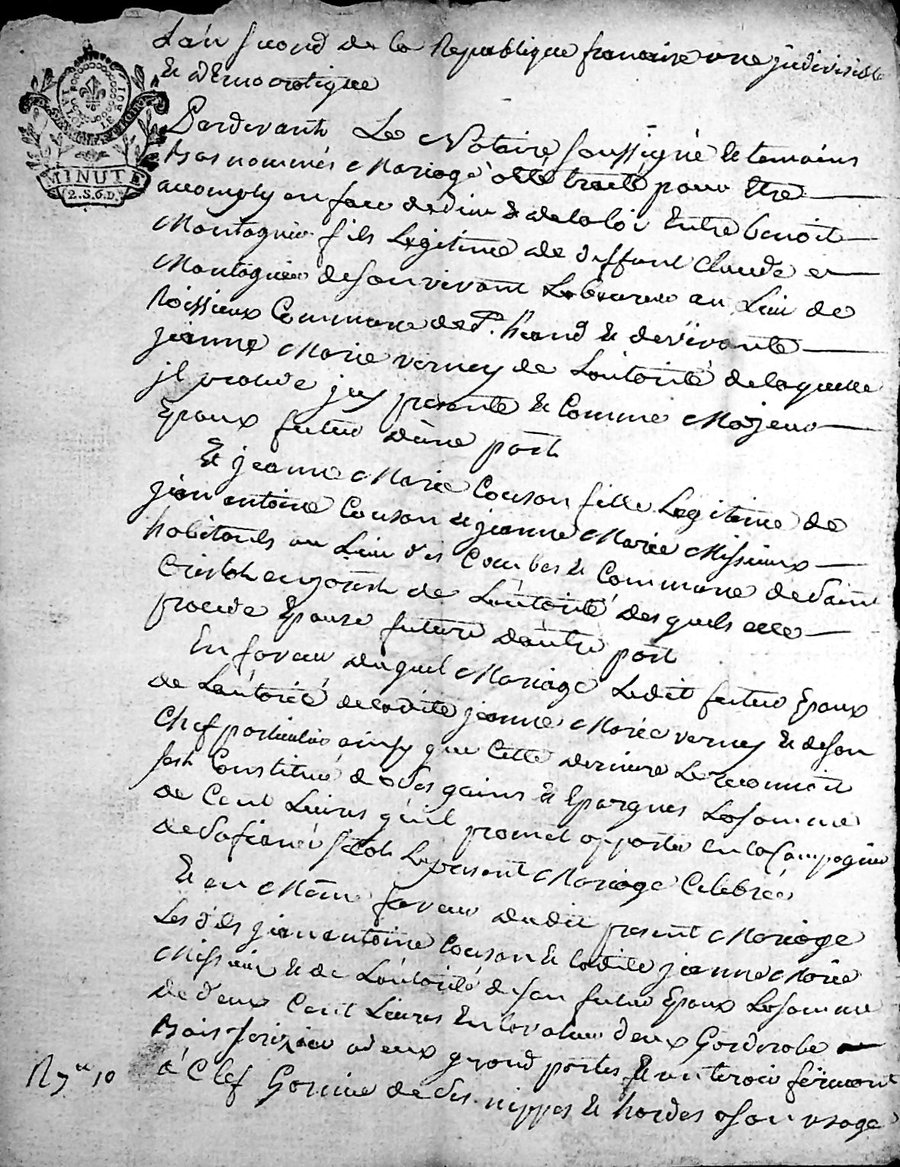 L'an second de la Republique francaise une jndivisible
Et dEmocratique
MINUTE
2.S.6.D.
Pardevant Le Notaire soussigné Et temoins
Bas nommés Mariage a Eté traité pour Etre
accomply en face de dieu Et de la loi Entre benoit
Montagnier fils Legitime de deffunt Claude
Montagnier de son vivant Laboureur au Lieu de
Roissieux Commune de St. heand Et de vivante
jeanne Marie verney de Lautorité de laquelle
jl procede jcy presente Et Comme Majeur
Epoux futur d'une part
Et jeanne Marie Couson fille Legitime de
jean antoine Couson Et jeanne Marie Missieux
habitants au Lieu des Combes Commune de Saint
Cristoh en jarest de Lautorité des quels elle
procede Epouse future dautre part
En faveur duquel Mariage Ledit futur Epoux
de Lautorité de ladite jeanne Marie verney Et de son
Chef particulier ainsy que Cette derniere Le reconnoit
sest Constitué de Ses gains Et Epargnes La somme
de Cent Livres qu'il promet apporter en la Compagnie
de Sa fiancé sitoh Le present Mariage Celebré
Et en Même faveur dudit present Mariage
Les dits jean antoine Couson Et ladite jeanne Marie
Missieux Et de Lautorité de son futur Epoux La somme
de deux Cent Livres En la valeur deux Garderobe
Bois a deux grand portes Et un tiroir fermant
à Clef Garnie de Ses nippes Et hardes a son usage
R 10